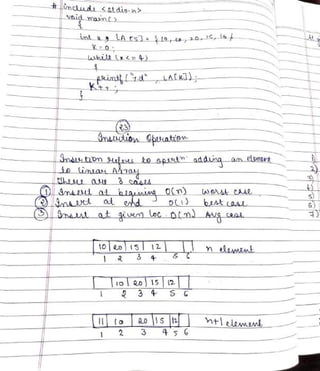 # include <stdio.h>
void main()
{
int k, LA[5] = {10, 20, 15, 16}
k=0;
while (k<=4)
{
printf("%d", LA[k]);
k++;
}
23
Insertion Operation
Insertion refers to opertn adding an element
to linear Array
There are 3 cases
1 Insert at beginning O(n) worst case
2 Insert at end O(1) best case
3 Insert at given loc O(n) Avg case
10 20 15 12 n element
1 2 3 4 5 6
10 20 15 12
1 2 3 4 5 6
11 10 20 15 12 n+1 element
1 2 3 4 5 6
1)
2)
3)
4)
5)
6)
7)